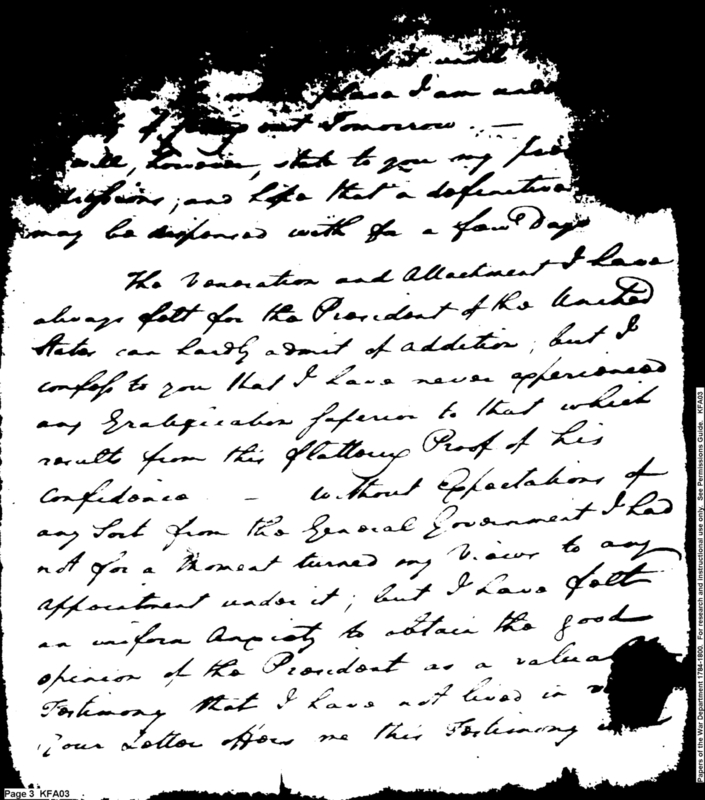 until
place I am under
of going out Tomorrow. —
will, however, state to you my
and hope that a definitive
may be dispensed with for a few Days
The Veneration and Attachment I have
always felt for the President of the United
States can hardly admit of addition; but I
confess to you that I have never experienced
any Gratification superior to that which
results from this flattering Proof of his
Confidence — without Expectations of
any Sort from the General Government I had
not for a Moment turned my Views to any
appointment under it; but I have felt
an uniform Anxiety to obtain the good
opinion of the President as a
Testimony that I have not lived in
Your Letter offers me this Testimony
Page 3 KFA03
Papers of the War Department 1784-1800. For research and instructional use only. See Permissions Guide. KFA03